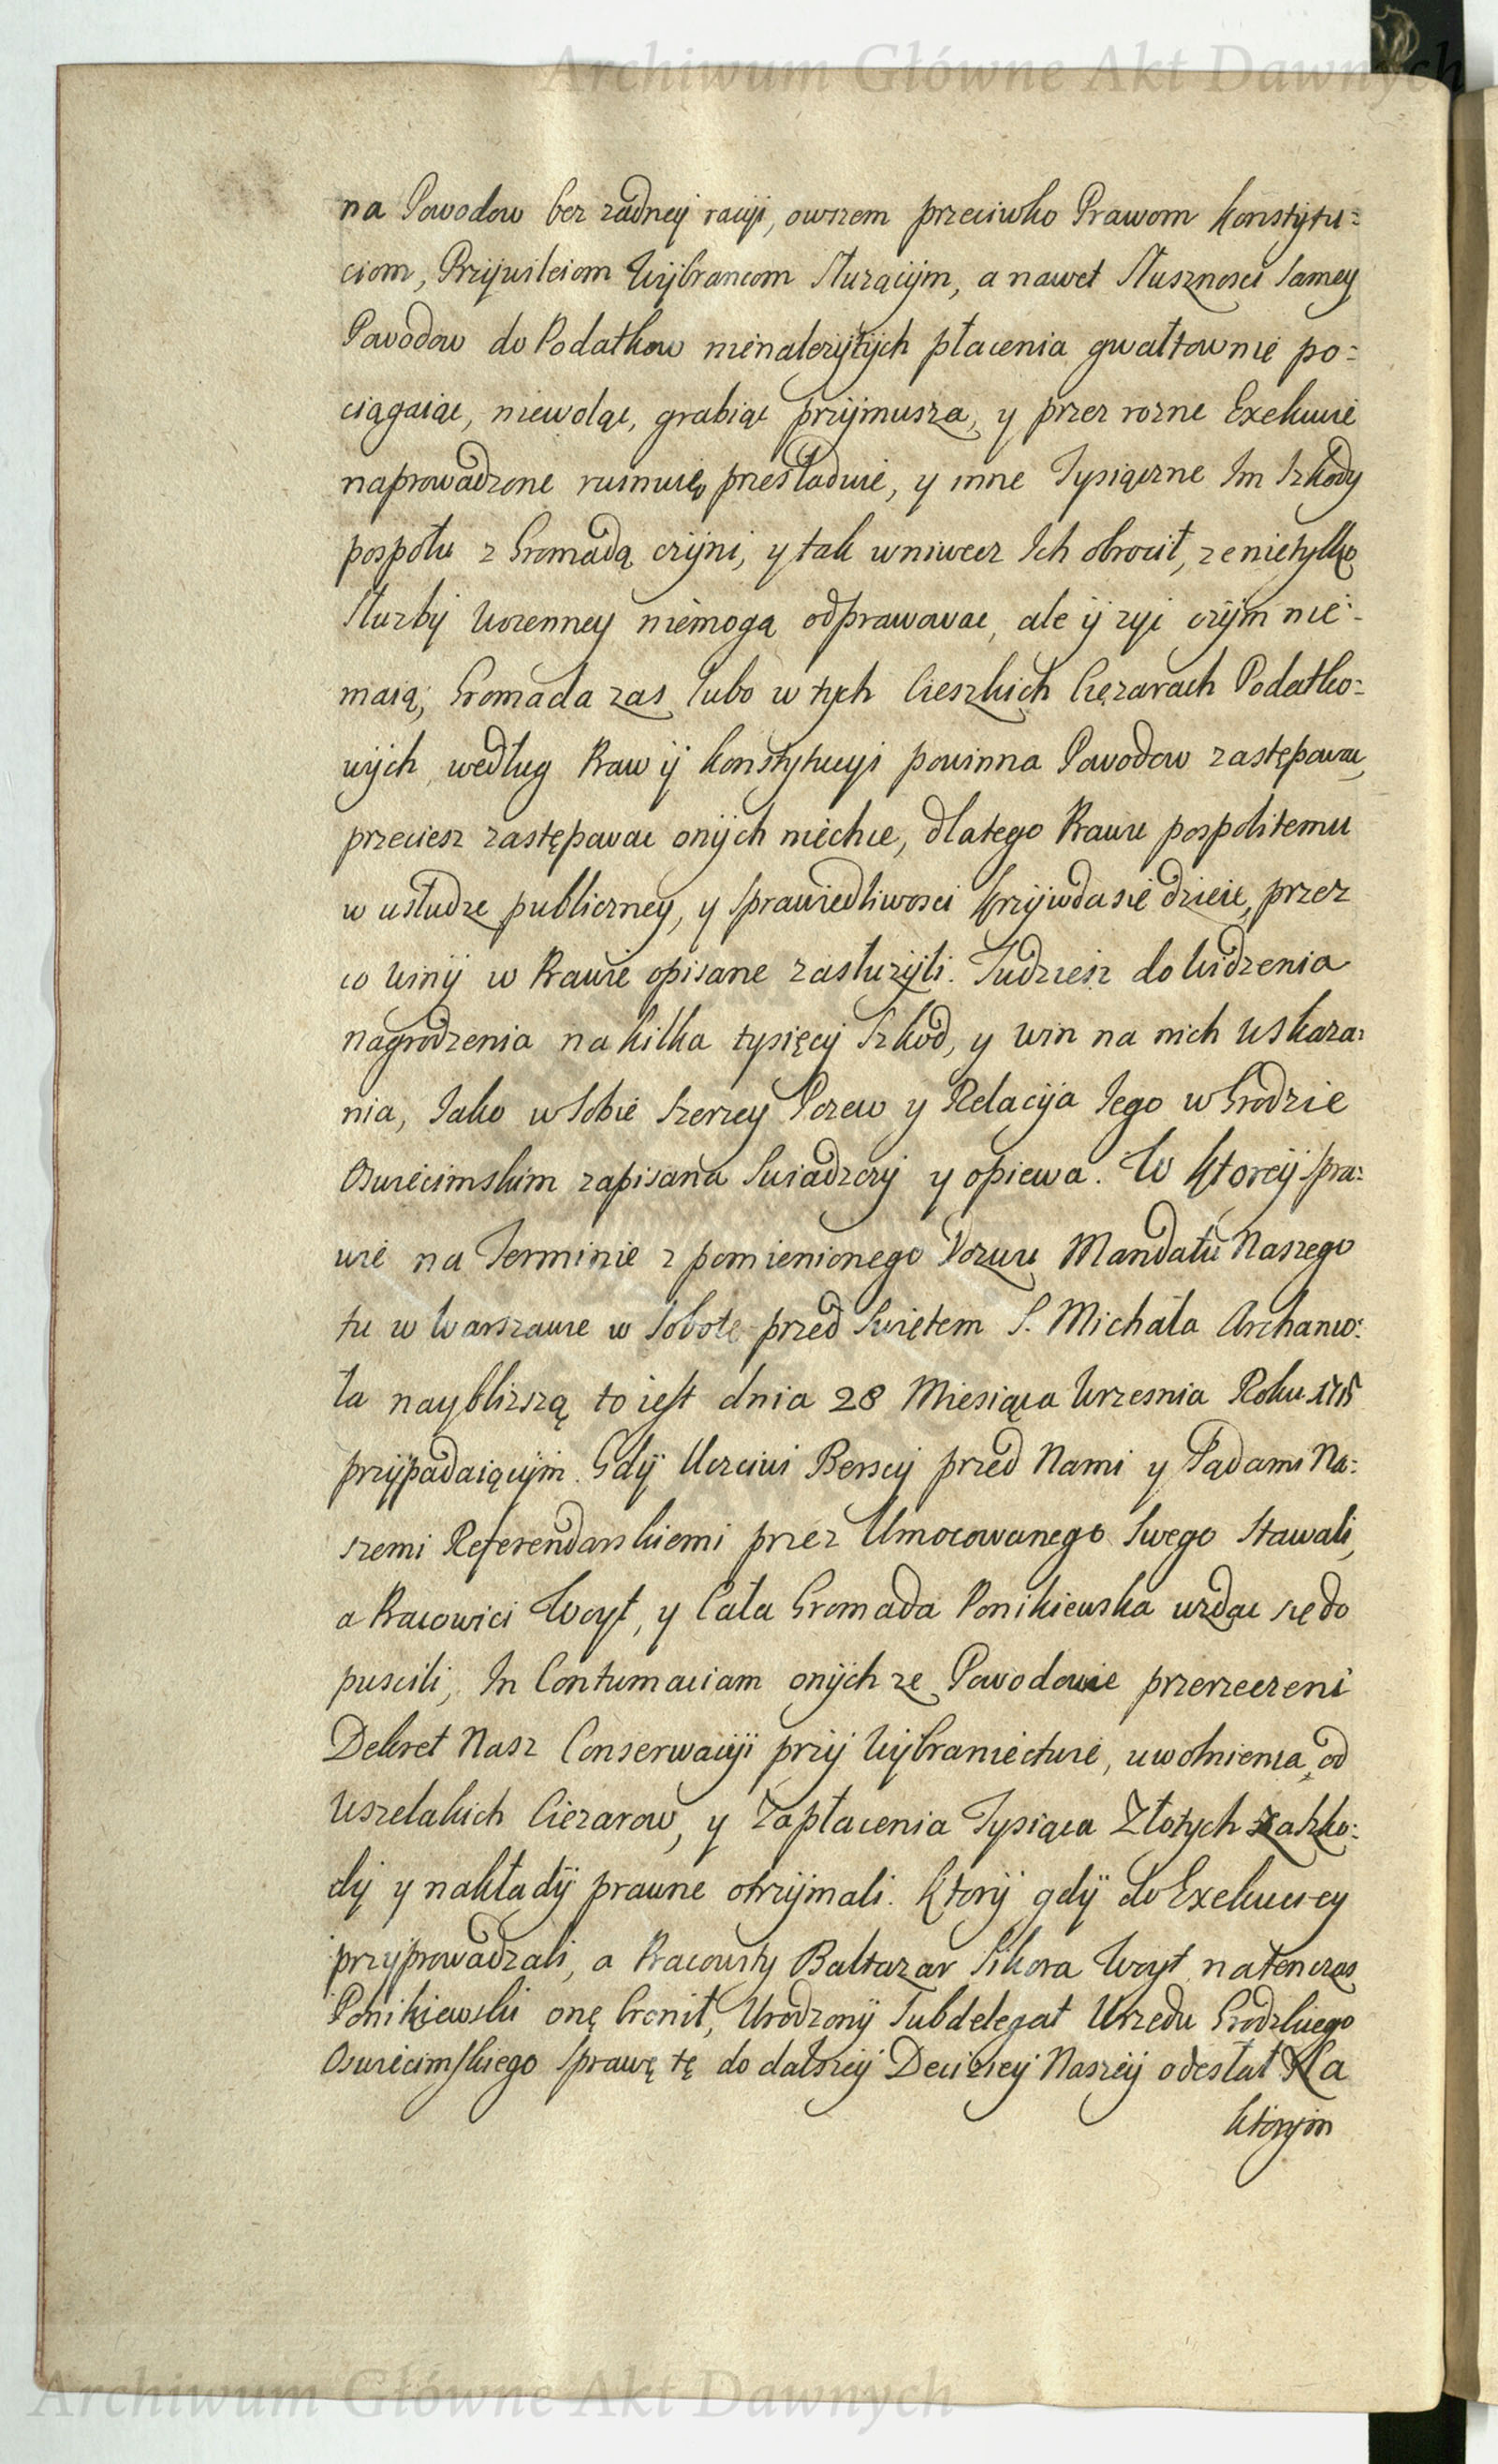 Archiwum Główne Akt Dawnych
na Powodow bez zadney racyi, owszem przeciwko Prawom Konstytu=
ciom, Przywileiom Wybrancom Służącym, a nawet Słusznosci Samey
Powodow do Podatkow nienależytych płacenia gwałtownie po=
ciągaiąc, niewoląc, grabiąc przymusza, y przez rozne Exekucie
naprowadzone ruinuie, prześladuie, y inne Tysiączne Im Szkody
pospołu z Gromadą czyni, y tak wniwecz Ich obrocił, ze nietylko
Służby Woienney niemogą odprawowac, ale y zyc czym nie=
maią; Gromada zas lubo w tych Cieszkich Cięzarach Podatko=
wych według Praw y Konstytucyi powinna Powodow zastępowac,
przeciesz zastępowac onych niechce, dlatego Prawu pospolitemu
w usłudze publiczney, y Sprawiedliwosci Krzywda sie dzieie, przez
co Winy w Prawie opisane zasłuzyli. Tudziesz do Widzenia
nagrodzenia na kilka tysięcy Szkod, y win na nich Wskaza=
nia, Iako w Sobie Szerzey Pozew y Relacyia Iego w Grodzie
Oswiecimskim zapisana Swiadczy y opiewa. W Ktorey Spra=
wie na Terminie z pomienionego Pozwu Mandatu Naszego
tu w Warszawie w Sobotę przed Swiętem S. Michała Archanio=
ła nayblizszą to iest dnia 28 Miesiąca Wrzesnia Roku
przypadaiącym. Gdy Uczciwi Berscy przed Nami y Sądami Na=
szemi Referendarskiemi przez Umocowanego Swego Stawali,
a Pracowici Woyt, y Cała Gromada Ponikiewska wzdac się do
puscili, In Contumaciam onych ze Powodowie przerzeczeni
Dekret Nasz Conserwacyi przy Wybraniectwie, uwolnienia od
Wszelakich Ciezarow, y Zapłacenia Tysiąca Złotych za szko=
dy y nakłady prawne otrzymali. Ktory gdy do Exekucyey
przyprowadzali, a Pracowity Baltazar Sikora Woyt natenczas
Ponikiewski onę bronił, Urodzony Subdelegat Urzedu Grodzkiego
Oswiecimskiego Sprawę tę do dalszey Decizyey Naszey odesłał Na
Ktorym
Archiwum Główne Akt Dawnych